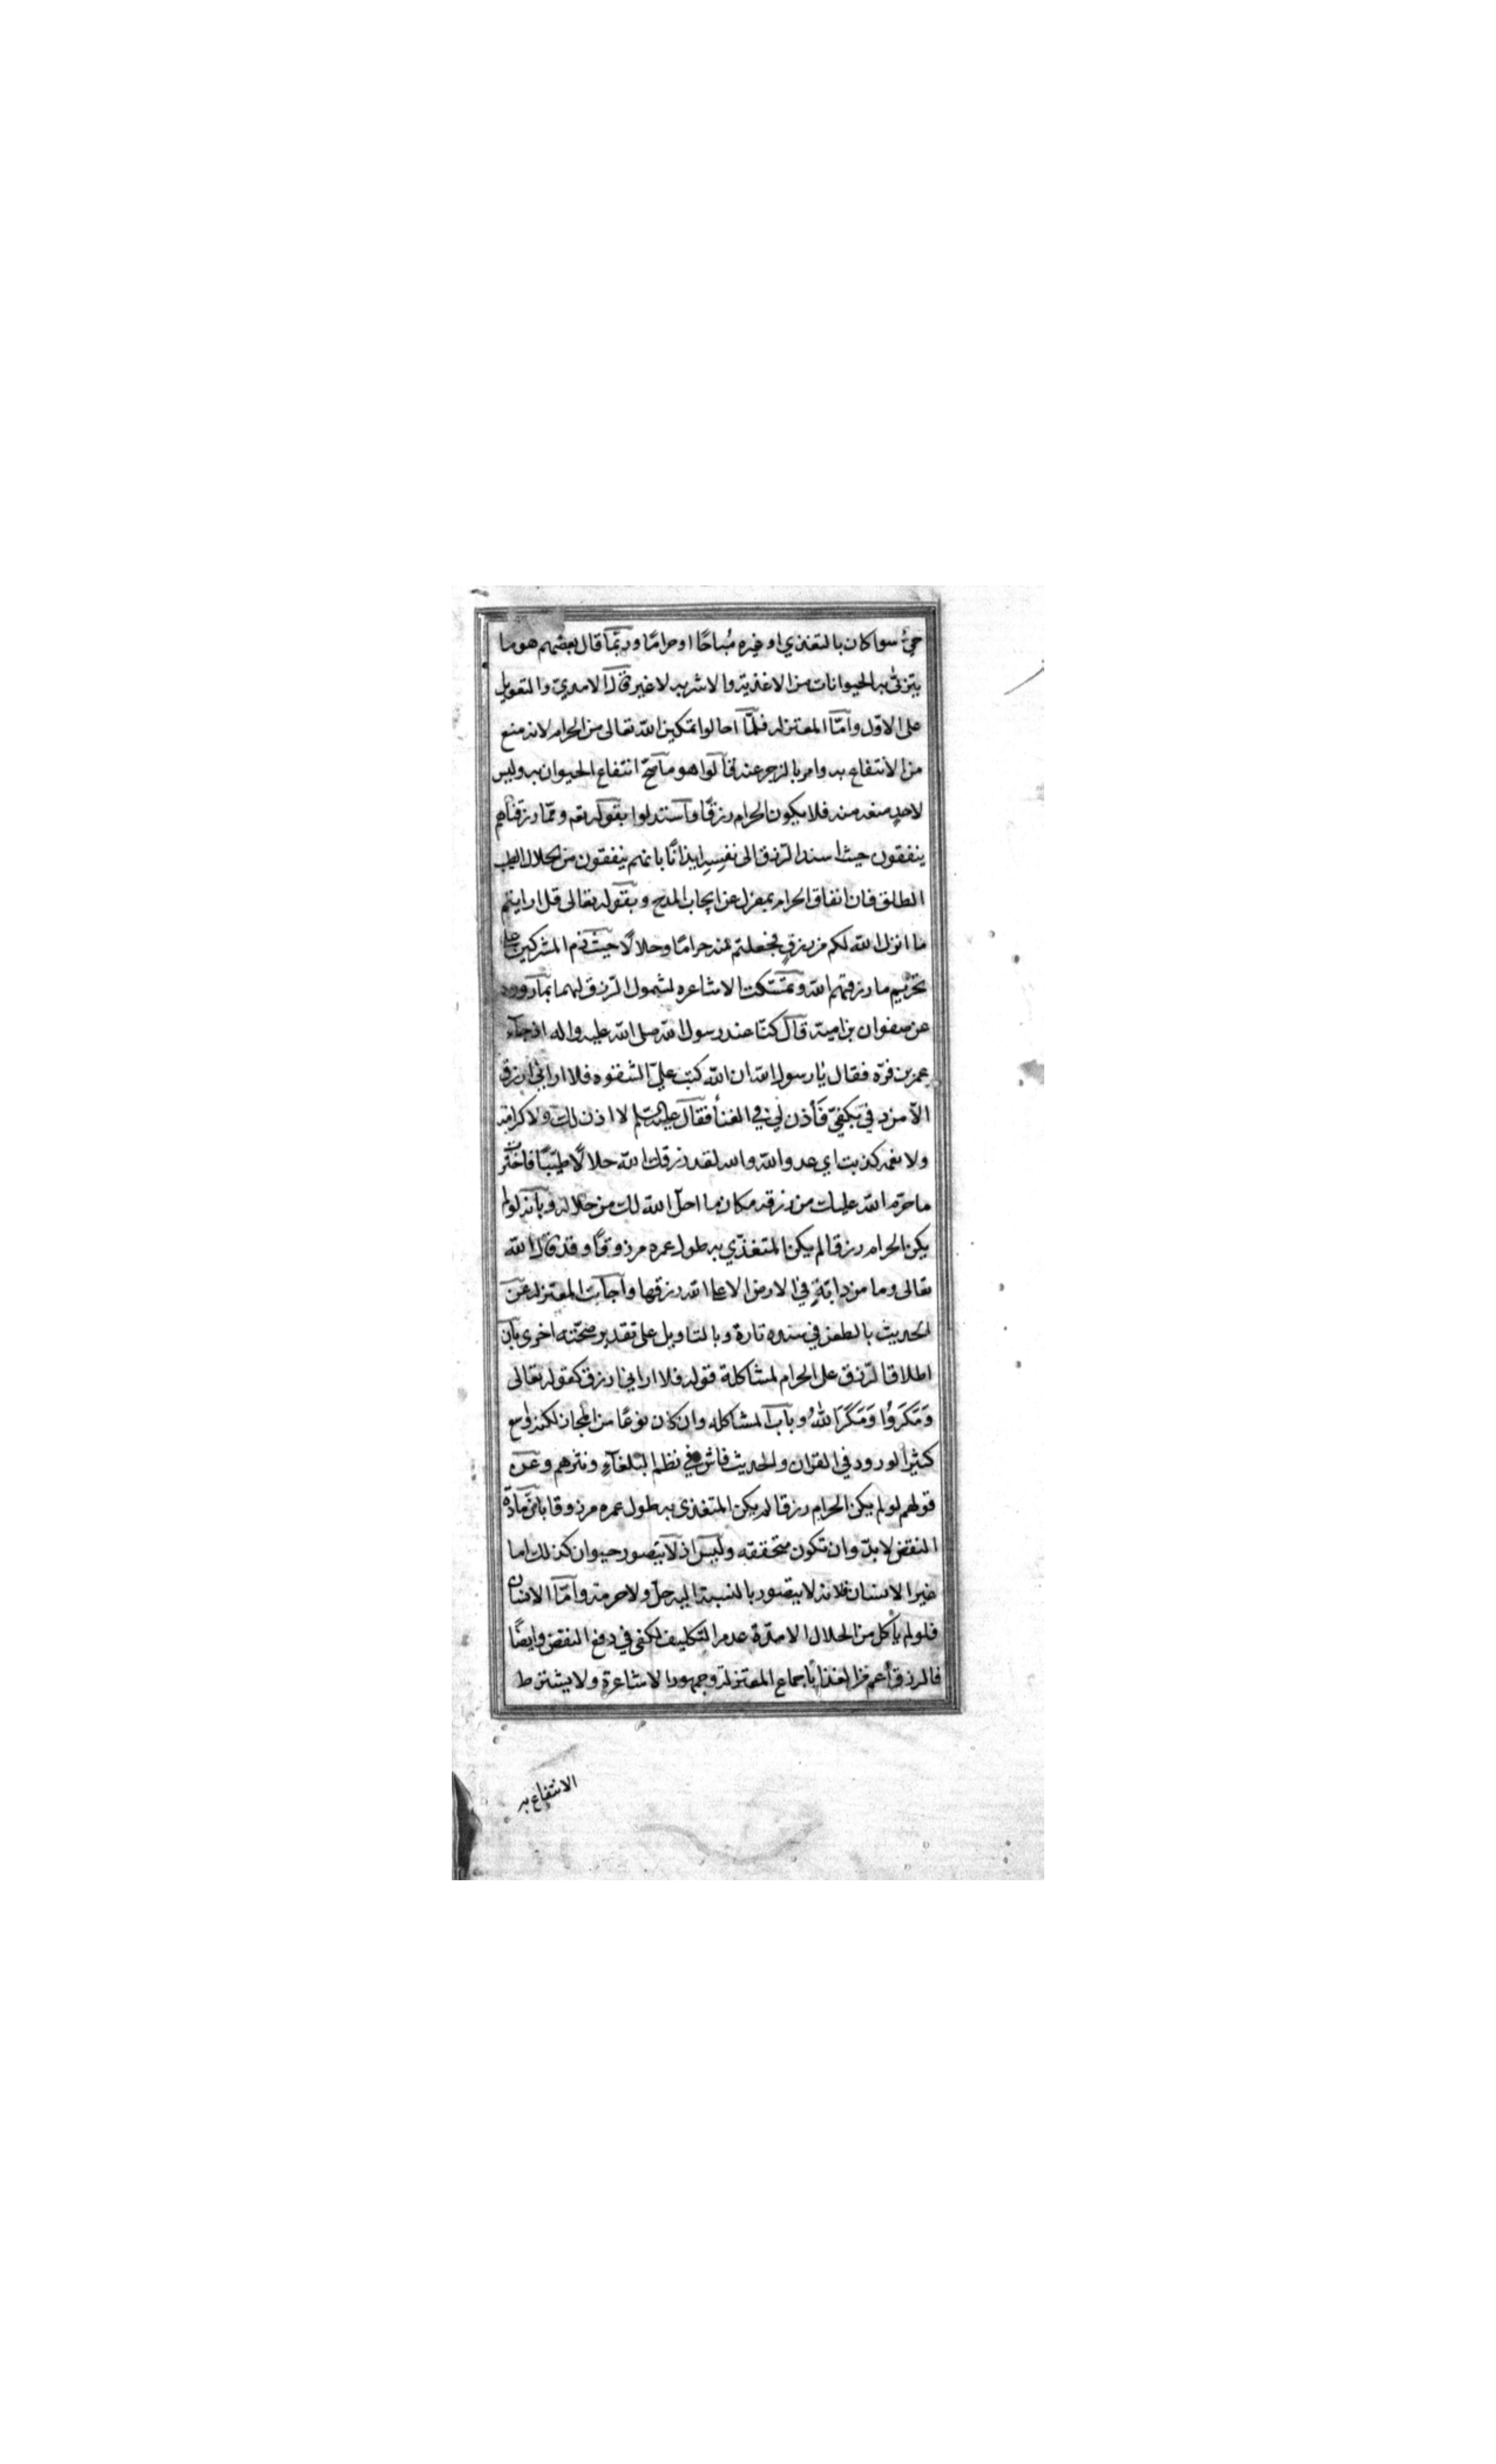 حيّ سواكان بالتغذي او غيره مُباحًا او حرامًا وربّما قال بعضهم هو ما
يتربّى به الحيوانات من الاغذية والاشربه لا غير قال الامديّ والتعويل
على الاوّل وامّا المعتزله فلمّا احالوا تمكين الله تعالى من الحرام لانه منع
من الانتفاع به وامر بالزجر عنه قالوا هو ما صحّ انتفاع الحيوان به وليس
لاحدٍ منعه منه فلا يكون الحرام رزقًا واستدلوا بقوله تعم وممّا رزقناهم
ينفقون حيث اسند الرّزق الى نفسِه ايذانًا بانهم ينفقون من الحلال الطيب
الطلق فان انفاق الحرام بمعزل عن ايجاب المدح وبقوله تعالى قل ارايتم
ما انزل الله لكم من رزقٍ فجعلتم منه حرامًا وحلالًا حيث ذم المشركين على
تحريم ما رزقهم الله وتمسّكت الاشاعره لشمول الرّزق لهما بما روود
عن صفوان بن امية قال كنّا عند رسول الله صلى الله عليه واله اذ جاء
عمر بن قرّه فقال يا رسول الله ان الله كتب عليّ الشقوه فلا اراني ارزق
الّا من دفي بكفيّ فَأذن لي في الغنأ فقال عليه السلم لا اذن لك ولا كرامة
ولا نعمه كذبت اي عدو الله والله لقد رزقك الله حلالًا طيّبًا فاخترت
ما حرّم الله عليك من رزقه مكان ما احلّ الله لك من حلاله وبانه لو لم
يكن الحرام رزقا لم يكن المتغذّي به طول عمره مرزوقًا وقد قال الله
تعالى وما من دابّةٍ في الارض الا على الله رزقها واجابت المعتزله عن
الحديث بالطعن في سنده تارة وبالتاويل على تقدير صحّته اخرى بان
اطلاق الرّزق على الحرام لمشاكلة قوله فلا اراني ارزق كقوله تعالى
وَمَكَرَوُا وَمَكَرَ اللهُ وباب المشاكله وان كان نوعًا من المجاز لكنه واسع
كثير الورود في القران والحديث فاش في نظم البلغآء ونثرهم وعن
قولهم لو لم يكن الحرام رزقا لم يكن المتغذى به طول عمره مرزوقا بان مادّة
النقض لا بدّ وان تكون متحققه وليس اذ لا يتصور حيوان كذلك اما
غير الانسان فلانه لا يتصور بالنسبة اليه حلّ ولا حرمة وامّا الانسان
فلو لم يأكل من الحلال الا مدّة عدم التكليف لكفى في دفع النقض وايضًا
فالرزق أعم من الغذا باجماع المعتزلة وجمهور الاشاعرة ولا يشترط
الانتفاع به